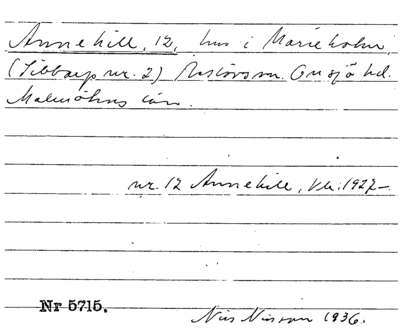 Annehill, 12, hus i Marieholm,
(Sibbarp nr. 2) Reslövs sn. Onsjö hd.
Malmöhus län.
nr. 12 Annehill, kb: 1927–
Nr 5715.
Nils Nilsson 1936.